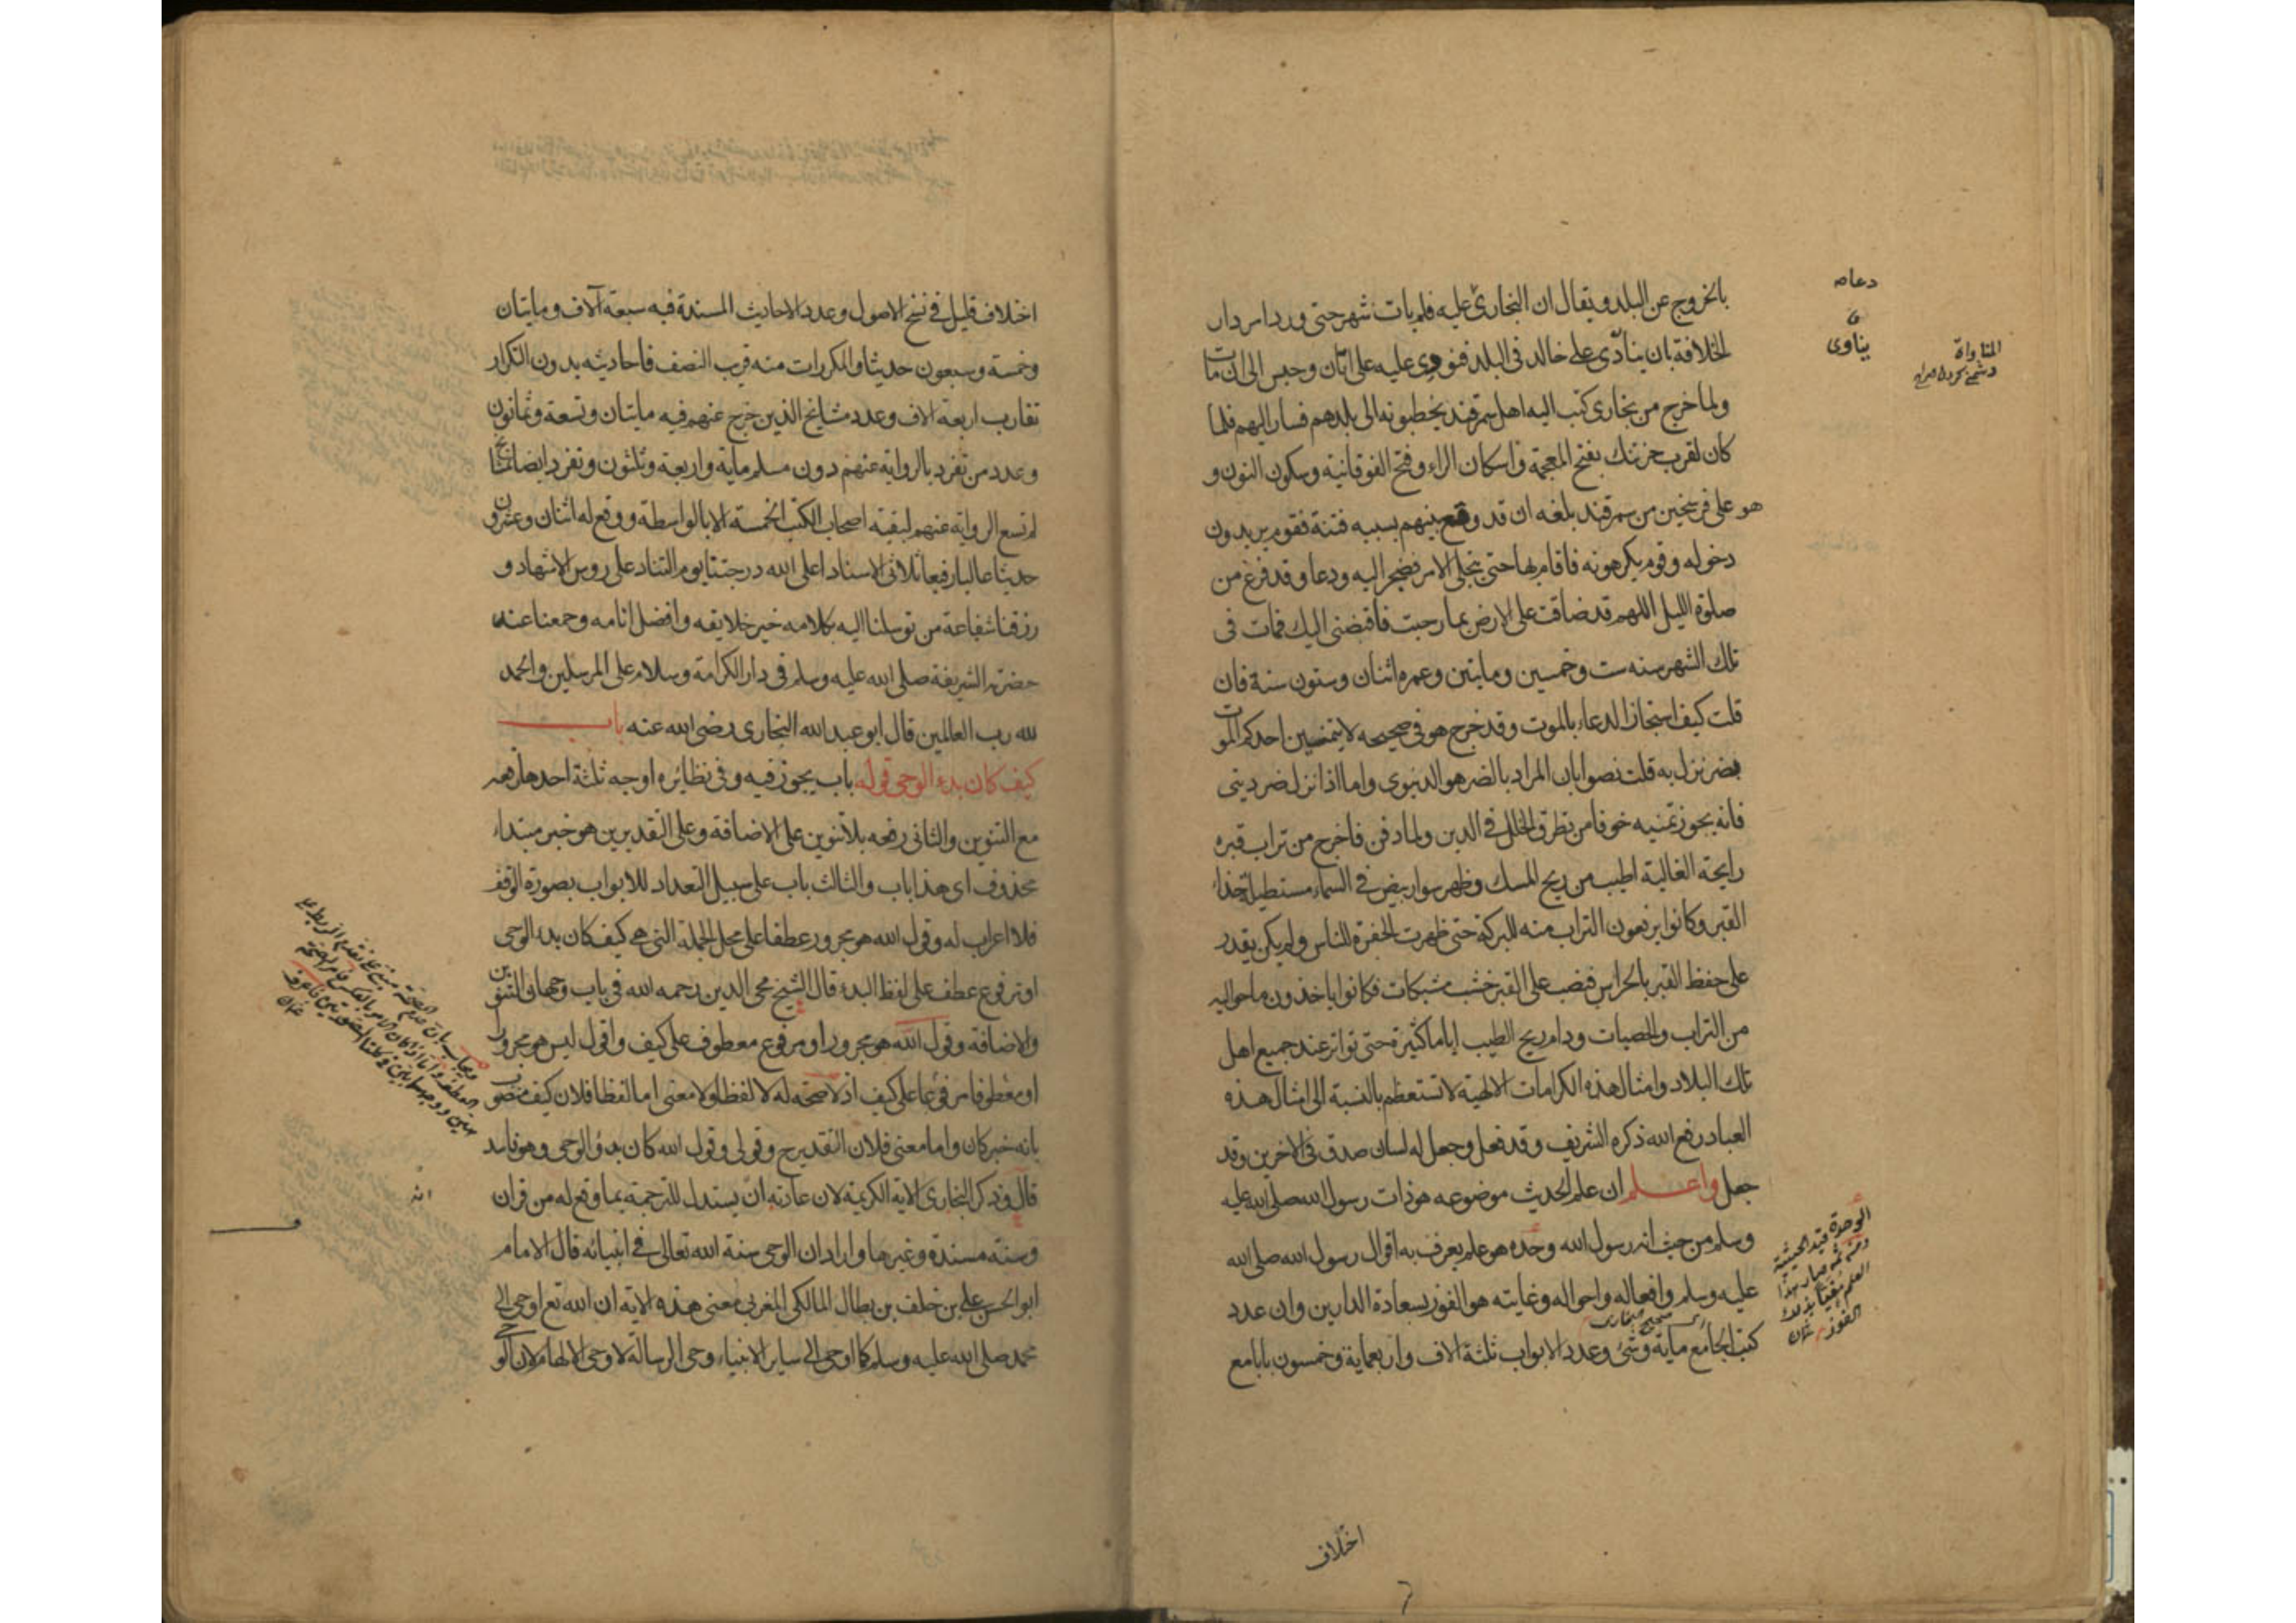 بالخروج عن البلد ويقال ان البخارى عليه فلم يات شهر حتى ورد امر دار
الخلافة بان ينادى على خالد فى البلد فنودى عليه على اتان وحبس الى ان مات
ولما خرج من بخارى كتب اليه اهل سمرقند يخطبونه الى بلدهم فسار اليهم فلما
كان لقرب خرتنك بفتح المعجمة واسكان الراء وفتح الفوقانية وسكون النون و
هو على فرسخين من سمرقند بلغه ان قد وقع بينهم بسببه فتنة فقوم يريدون
دخوله وقوم يكرهونه فاقام بها حتى ينجلى الامر فضجر اليه ودعا وقد فرغ من
صلوة الليل اللهم قد ضاقت على الارض بما رحبت فاقبضنى اليك فمات فى
تلك الشهر سنه ست وخمسين ومايتين وعمره اثنان وستون سنة فان
قلت كيف استجاز الدعاء بالموت وقد خرج هو فى صحيحه لا يتمنين احدكم الموت
بضر نزل به قلت نصوا بان المراد بالضر هو الدنيوى واما اذا نزل ضر دينى
فانه يجوز تمنيه خوفا من تطرق الخلل فى الدين ولما دفن فاخرج من تراب قبره
رايحة الغالية اطيب من ريح المسك وظهر سوار بيض فى السماء مستطيلة حذاء
القبر وكانوا يرفعون التراب منه للبركة حتى ظهرت الحفرة للناس ولم يكن يقدر
على حفظ القبر بالحراس فنصب على القبر خشب مشبكات فكانوا ياخذون ما حواليه
من التراب والحصيات ودام ريح الطيب اياما كثيرة حتى تواتر عند جميع اهل
تلك البلاد وامثال هذه الكرامات الالهية لا تستعظم بالنسبة الى امثال هذه
العباد رفع الله ذكره الشريف وقد فعل وجعل له لسان صدق فى الاخرين وقد
جعل واعلم ان علم الحديث موضوعه هو ذات رسول الله صلى الله عليه
وسلم من حيث انه رسول الله وحده هو علم يعرف به اقوال رسول الله صلى الله
عليه وسلم وافعاله واحواله وغايته هو الفوز بسعادة الدارين وان عدد
كتب الجامع ماية وشئ وعدد الابواب ثلثة الاف واربعماية وخمسون بابا مع
دعاه
يناوى
المناواة
الوحدة قيد الحيثية
اختلاف
اختلاف قليل فى نسخ الاصول وعدد الاحاديث المسندة فيه سبعة آلاف ومايتان
وخمسة وسبعون حديثا والمكررات منه قرب النصف فاحاديثه بدون التكرار
تقارب اربعة الاف وعدد مشايخ الذين خرج عنهم فيه مايتان وتسعة وثمانون
وعدد من تفرد بالرواية عنهم دون مسلم ماية واربعة وثلثون وتفرد ايضا بمشايخ
لم تسع الرواية عنهم لبقية اصحاب الكتب الخمسة الا بالواسطة ووقع له اثنان وعشرون
حديثا عاليا رفيعا ثلاثى الاسناد اعلى الله درجتنا يوم التناد على روس الاشهاد و
رزقنا شفاعة من توسلنا اليه بكلامه خير خلايقه وافضل انامه وجمعنا عند
حضرته الشريفة صلى الله عليه وسلم فى دار الكرامة وسلام على المرسلين والحمد
لله رب العالمين قال ابو عبد الله البخارى رضى الله عنه باب
كيف كان بدء الوحى قوله باب يجوز فيه وفى نظائره اوجه ثلثة احدها رفعه
مع التنوين والثانى رفعه بلا تنوين على الاضافة وعلى التقديرين هو خبر مبتداء
محذوف اى هذا باب والثالث باب على سبيل التعداد للابواب بصورة الوقف
فلا اعراب له وقول الله هو مجرور عطفا على محل الجملة التى هى كيف كان بدء الوحى
او مرفوع عطف على لفظ البدء قال الشيخ محى الدين رحمه الله فى باب وجهان التنوين
والاضافة وقول الله هو مجرور او مرفوع معطوف على كيف واقول ليس هو مجرور
او معطوفا مرفوعا على كيف اذ لا صحة له لا لفظا ولا معنى اما لفظا فلان كيف منصوب
بانه خبر كان واما معنى فلان التقدير ح وقولى وقول الله كان بدؤ الوحى وهو فاسد
قال وذكر البخارى الاية الكريمة لان عادته ان يستدل للترجمة بما وقع له من قران
وسنة مسندة وغيرها واراد ان الوحى سنة الله تعالى فى انبيائه قال الامام
ابو الحسن على بن خلف بن بطال المالكى المغربى معنى هذه الاية ان الله تع اوحى الى
محمد صلى الله عليه وسلم كما اوحى الى ساير الانبياء وحى الرسالة لا وحى الالهام لان الوحى